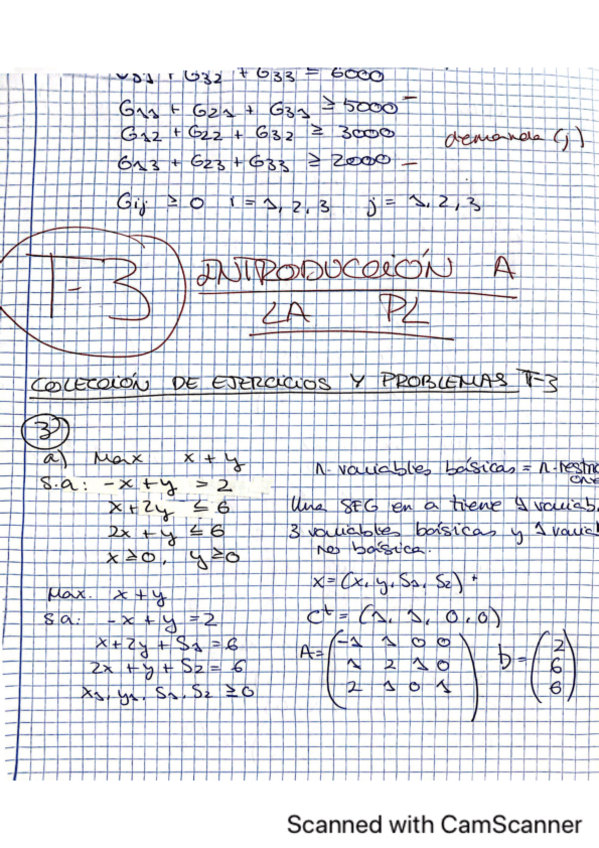 + G32 + G33 = 6000
G11 + G21 + G31 ≥ 5000 -
G12 + G22 + G32 ≥ 3000
demanda (j)
G13 + G23 + G33 ≥ 2000 -
Gij ≥ 0 i = 1, 2, 3 j = 1, 2, 3
T-3
INTRODUCCIÓN A
LA PL
COLECCIÓN DE EJERCICIOS Y PROBLEMAS T-3
3
a) Max x + y
s.a: -x + y = 2
x + 2y ≤ 6
2x + y ≤ 6
x ≥ 0, y ≥ 0
n. variables básicas = n.
Una SFG en a tiene 4
3 variables básicas y 1
no básica.
Max. x + y
s.a: -x + y = 2
x + 2y + S1 = 6
2x + y + S2 = 6
x1, y1, S1, S2 ≥ 0
x = (x, y, S1, S2) t
Ct = (1, 1, 0, 0)
A = -1 1 0 0
1 2 1 0
2 1 0 1
b = 2
6
6
Scanned with CamScanner